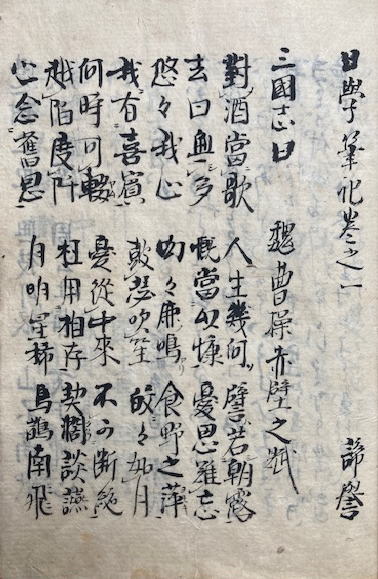 日學筆記巻之一 諦誉
三國志曰 魏曹操赤壁之賦
對酒當歌 人生幾何 譬若朝露
去日無多 慨當以慷 憂思難忘
悠々我心 呦々鹿鳴 食野之萍
我有喜賓 鼓瑟吹笙 皎々如月
何時可輟 憂從中來 不可断絶
越陌度阡 枉用相存 契濶談讌
心念舊恩 月明星稀 烏鵲南飛